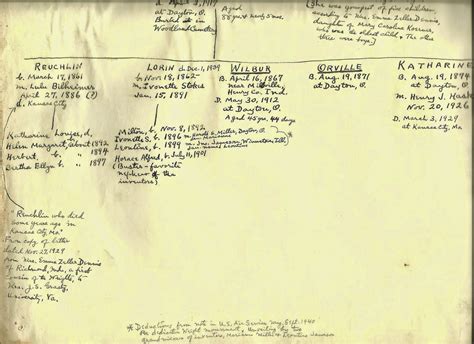 b. April 3, 1917
at Dayton, O.
Buried at in
Woodland Cemetery
Aged
(She was youngest of five children,
according to Mrs. Emma Zeller Dennis,
daughter of Mary Caroline Koerner,
who was the oldest child. The other
three were boys)
REUCHLIN
b. March 17, 1861
m. Lulu Billheimer
April 27, 1886 (?)
d. Kansas City
Katharine Louise, d.
Helen Margaret, about 1892
Herbert, b. " 1894
Bertha Ellyn b " 1897
LORIN d. Dec. 1, 1939
b. Nov. 18, 1862-
m. Ivonette Stokes
Jan. 15, 1891
Milton, b. Nov. 8, 1892
Ivonette S. b. 1896 m. Harold S. Miller, Dayton, O.
Leontine, b. 1899 m. Jno. Jameson,
Horace Alfred, b. July 11, 1901
("Buster"- favorite
nephew of the
inventors)
WILBUR
B. April 16, 1867
near Millville,
Henry Co. Ind.
D. May 30, 1912
at Dayton, O.
Aged 45 yrs, 44 days
ORVILLE
B. Aug. 19, 1871
at Dayton, O.
KATHARINE
B. Aug. 19, 1874
at Dayton, O.
M. Henry J. Hask
Nov. 20, 1926
D. March 3, 1929
at Kansas City, Mo
"Reuchlin who died
some years ago in
Kansas City, Mo."
From copy of letter
dated Nov. 27, 1929
from Mrs. Emma Zeller Dennis
of Richmond, Ind., a first
cousin of the Wrights, to
Mrs. J.S.
University, Va.
* Deductions from note in U.S. Air Service Mag. Sept. 1940
Re dedication Wright monument, unveiling by two
grand nieces of inventors, Marianne Miller & Leontine Jameson